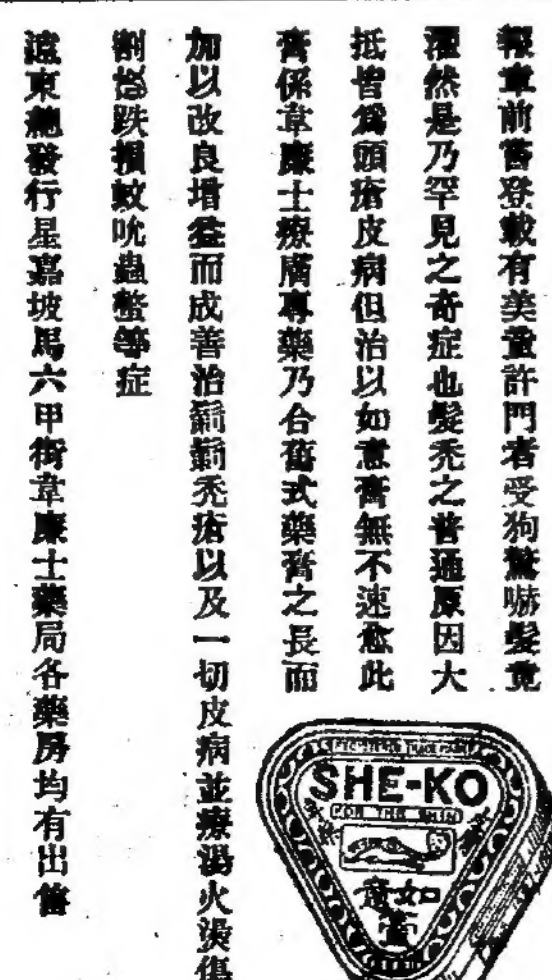 報章前嘗登載有美童許門者受狗驚嚇髮竟
濯然是乃罕見之奇症也髮禿之普通原因大
抵皆爲頭瘡皮病但治以如意膏無不速愈此
膏係韋廉士療膚專藥乃合舊式藥膏之長而
加以改良增益而成善治癬禿瘡以及一切皮病並療湯火燙傷
割傷跌損蚊吮蟲螫等症
遠東總發行星嘉坡馬六甲街韋廉士藥局各藥房均有出售
REGISTERED TRADE MARK
SHE-KO
FOR THE SKIN
如意膏